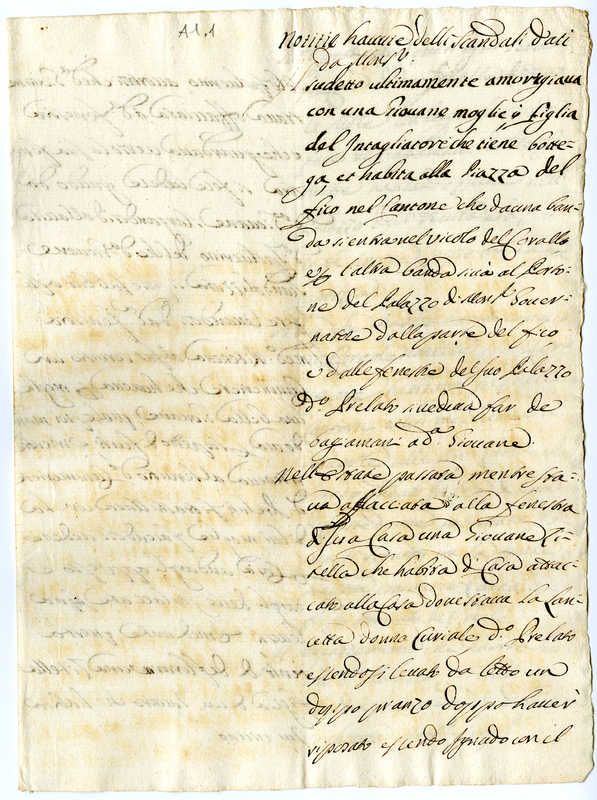 A1.1
Notitie havute delli scandali dati
da Mons.r
sudetto ultimamente amoregiava
con una Giovane moglie ò figlia
del Intagliatore che tiene botte-
ga, et habita alla Piazza del
fico nel Cantone che da una ban-
da si entra nel vicolo del Corallo
e p l'altra banda si và al Porto-
ne del Palazzo di Mons.r Gover-
natore dalla parte del fico
e dalle fenestre del suo Palazzo
d.o Prelato si vedeva far de
bagiamani a d.a Giovane.
Nell Estate passata mentre sta-
va affacciata alla fenestra
di sua Casa una Giovane Zi-
tella che habita di Casa attac-
cato alla Casa dove stava la
donna Curiale d.o Prelato
essendosi levato da letto un
doppo pranzo doppo haver
riposato essendo con il